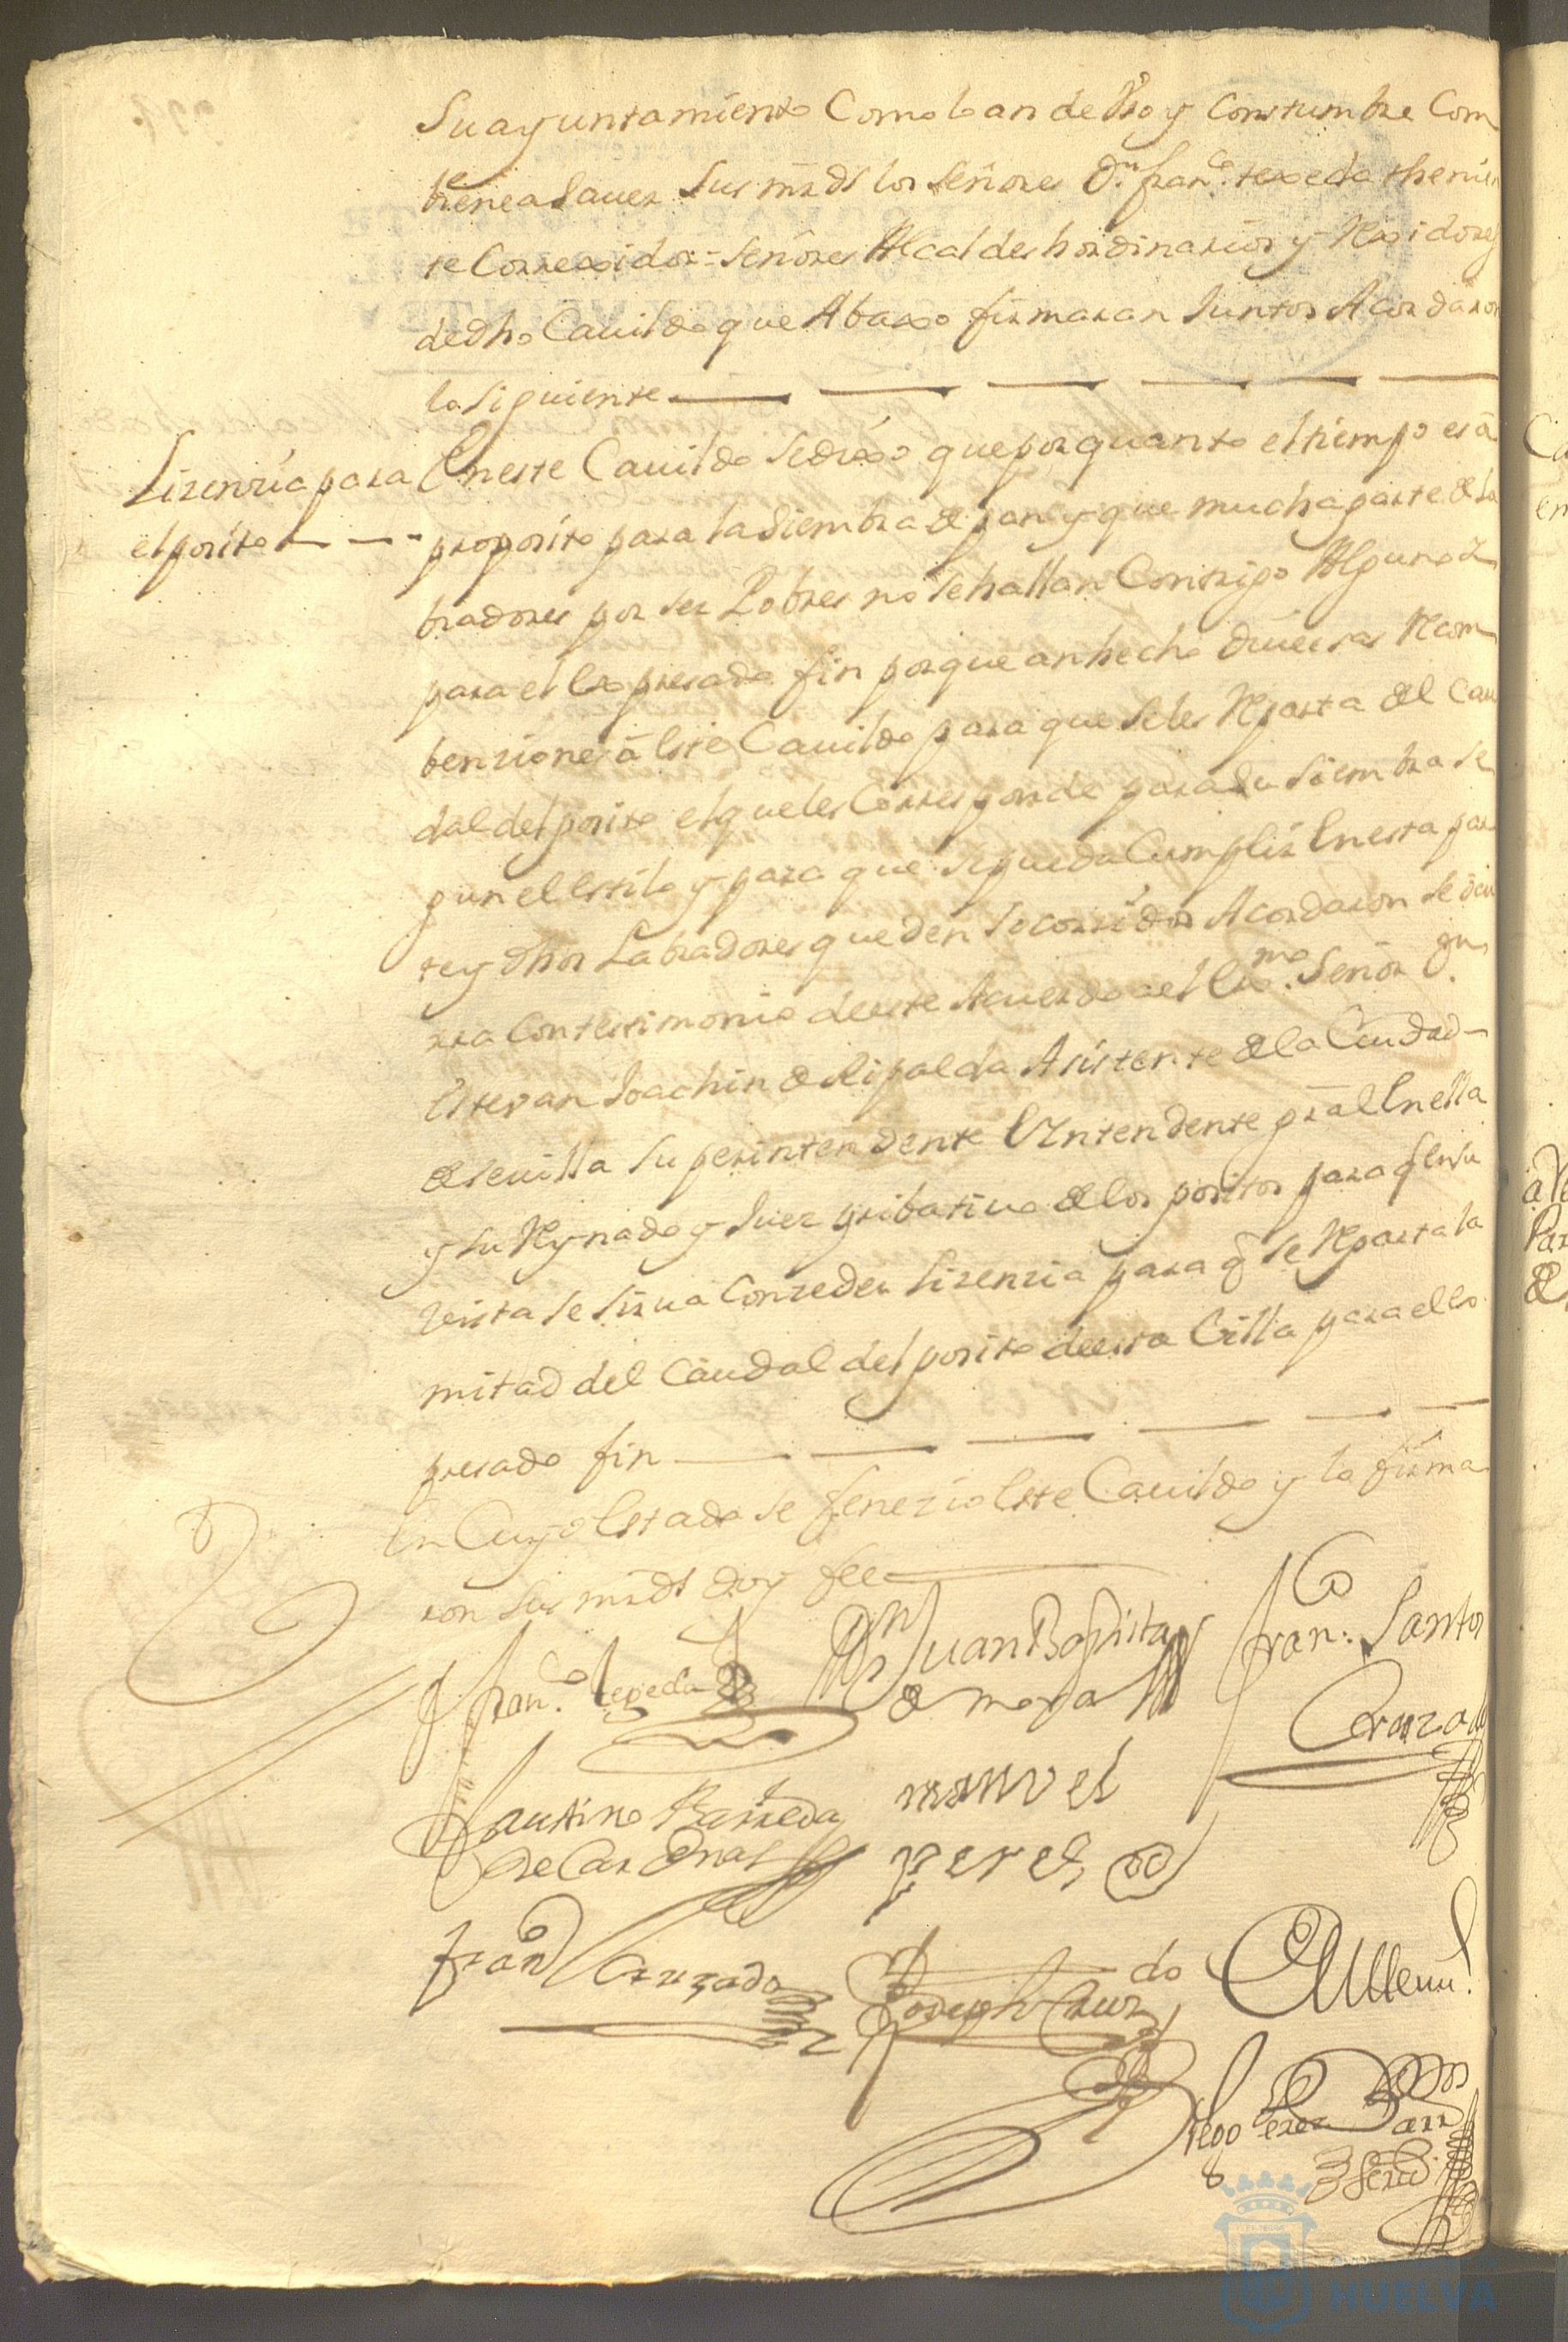 Su ayuntamiento Como lo an de Vso y Constumbre Com
biene a Sauer Sus mrds los Señores Dn. franco. texeda theni
te Correxidor = Señores Alcaldes hordinarios y Rexidores
de dho Cauildo que Abaxo firmaran Juntos Acordaron
lo Siguiente
Lizenzia para
el posito
En este Cauildo Se dixo que por quanto el tiempo es a
proposito para la Siembra de pan y que mucha parte de la
bradores por ser Pobres no Se hallan Con trigo Alguno
para el Expresado fin por que an hecho diuersas Recom
benziones a este Cauildo para que Se les Reparta del Cau
dal del posito el que les Corresponde para Su Siembra Se
gun el estilo y para que Se pueda Cumplir En esta par
te y dhos Labradores queden Socorridos Acordaron Se
rra Con testimonio de este Acuerdo a el Exmo. Señor Dn
Estevan Joachin de Ripalda Asistente de la Ciudad
de Seuilla Superintendente E Yntendente gral En ella
y Su Reynado y Juez pribatiuo de los positos para q en su
Vista Se Sirua Conzeder Lizenzia para q Se Reparta la
mitad del Caudal del posito de esta Villa para el ex
presado fin
En Cuyo Estado Se fenezio Este Cauildo y lo firma
ron Sus mrds doy fee
Franco. texeda
Dn Juan Baptista
de mora
Franco. Santos
Cruzado
Faustino Barreda
de Cardenas
manuel
perez
Franco Cruzado
Joseph Cruzdo
Diego Perez